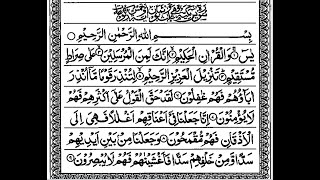 بِسْمِ اللّٰهِ الرَّحْمٰنِ الرَّحِيْمِ ○
يٰسٓ ○ وَالْقُرْاٰنِ الْحَكِيْمِ ○ اِنَّكَ لَمِنَ الْمُرْسَلِيْنَ ○ عَلٰى صِرَاطٍ
مُّسْتَقِيْمٍ ○ تَنْزِيْلَ الْعَزِيْزِ الرَّحِيْمِ ○ لِتُنْذِرَ قَوْمًا مَّاۤ اُنْذِرَ
اٰبَآؤُهُمْ فَهُمْ غٰفِلُوْنَ ○ لَقَدْ حَقَّ الْقَوْلُ عَلٰۤى اَكْثَرِهِمْ فَهُمْ
لَا يُؤْمِنُوْنَ ○ اِنَّا جَعَلْنَا فِيْۤ اَعْنَاقِهِمْ اَغْلٰلًا فَهِيَ اِلَى
الْاَذْقَانِ فَهُمْ مُّقْمَحُوْنَ ○ وَجَعَلْنَا مِنْۢ بَيْنِ اَيْدِيْهِمْ
سَدًّا وَّمِنْ خَلْفِهِمْ سَدًّا فَاَغْشَيْنٰهُمْ فَهُمْ لَا يُبْصِرُوْنَ ○